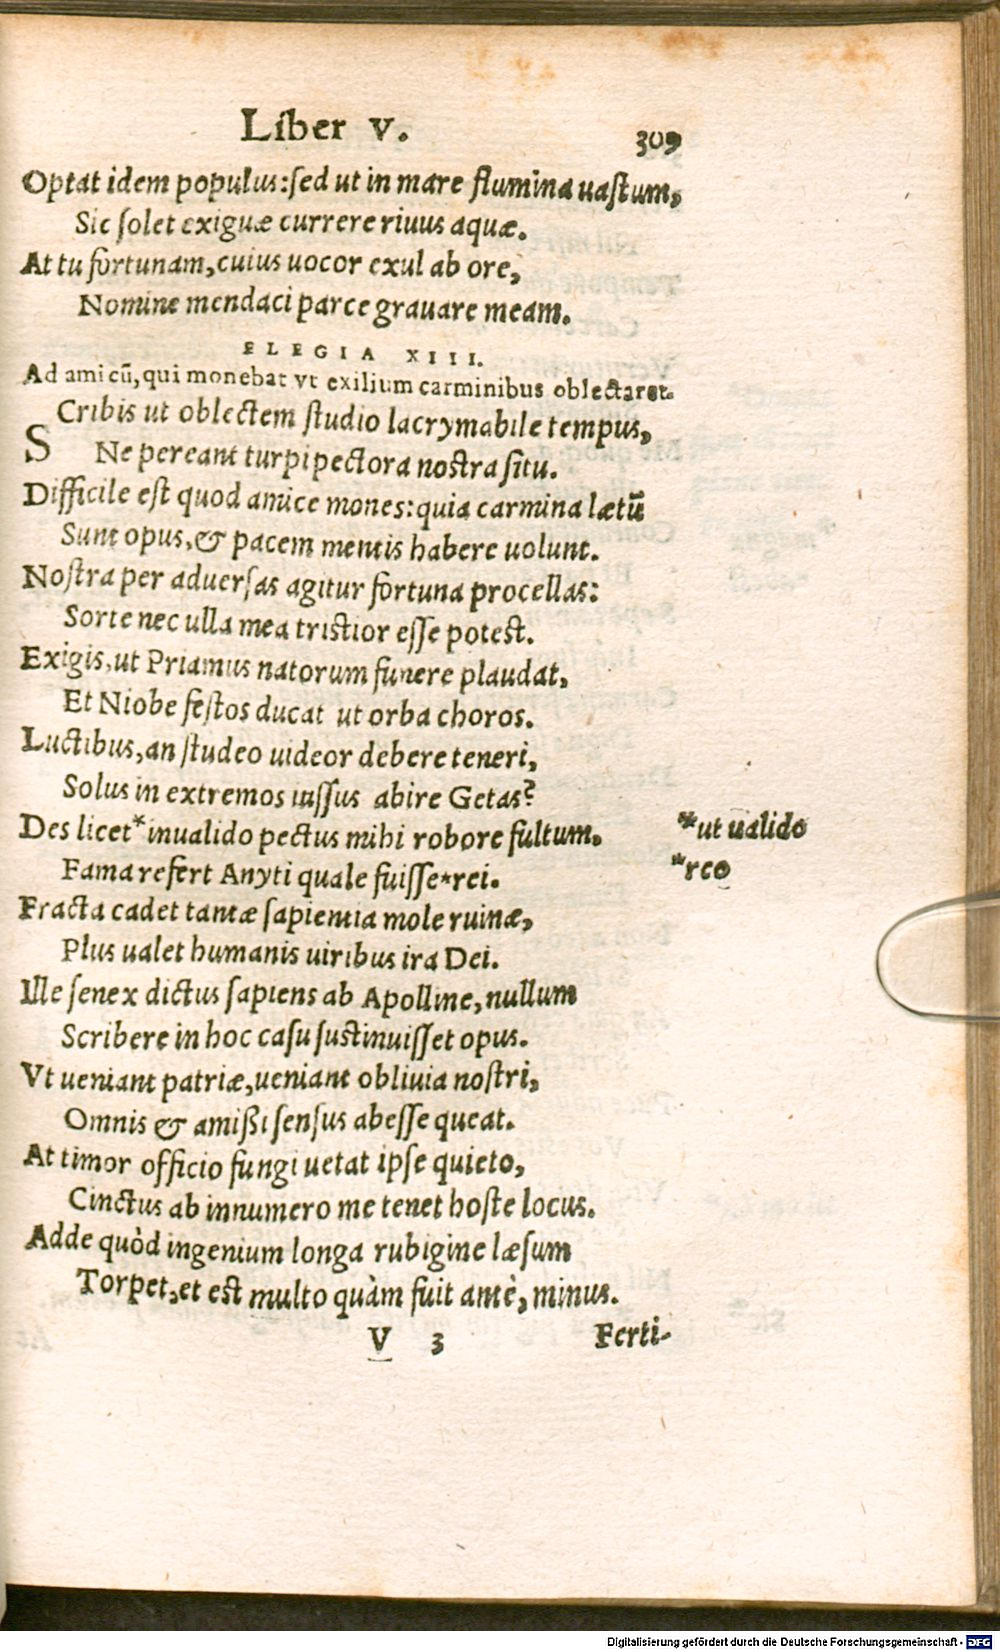 Liber V.
309
Optat idem populus: sed ut in mare flumina uastum,
Sic solet exiguæ currere riuus aquæ.
At tu fortunam, cuius uocor exul ab ore,
Nomine mendaci parce grauare meam.
ELEGIA XIII.
Ad amicū, qui monebat vt exilium carminibus oblectaret.
SCribis ut oblectem studio lacrymabile tempus,
Ne pereant turpi pectora nostra situ.
Difficile est quod amice mones: quia carmina lætū
Sunt opus, & pacem mentis habere uolunt.
Nostra per aduersas agitur fortuna procellas:
Sorte nec ulla mea tristior esse potest.
Exigis, ut Priamus natorum funere plaudat,
Et Niobe festos ducat ut orba choros.
Luctibus, an studeo uideor debere teneri,
Solus in extremos iussus abire Getas?
Des licet *inualido pectus mihi robore fultum, *ut ualido
Fama refert Anyti quale fuisse *rei. *reo
Fracta cadet tantæ sapientia mole ruinæ,
Plus ualet humanis uiribus ira Dei.
Ille senex dictus sapiens ab Apolline, nullum
Scribere in hoc casu sustinuisset opus.
Vt ueniant patriæ, ueniant obliuia nostri,
Omnis & amißi sensus abesse queat.
At timor officio fungi uetat ipse quieto,
Cinctus ab innumero me tenet hoste locus.
Adde quòd ingenium longa rubigine læsum
Torpet, et est multo quàm fuit antè, minus.
V 3
Ferti-
Digitalisierung gefördert durch die Deutsche Forschungsgemeinschaft - DFG